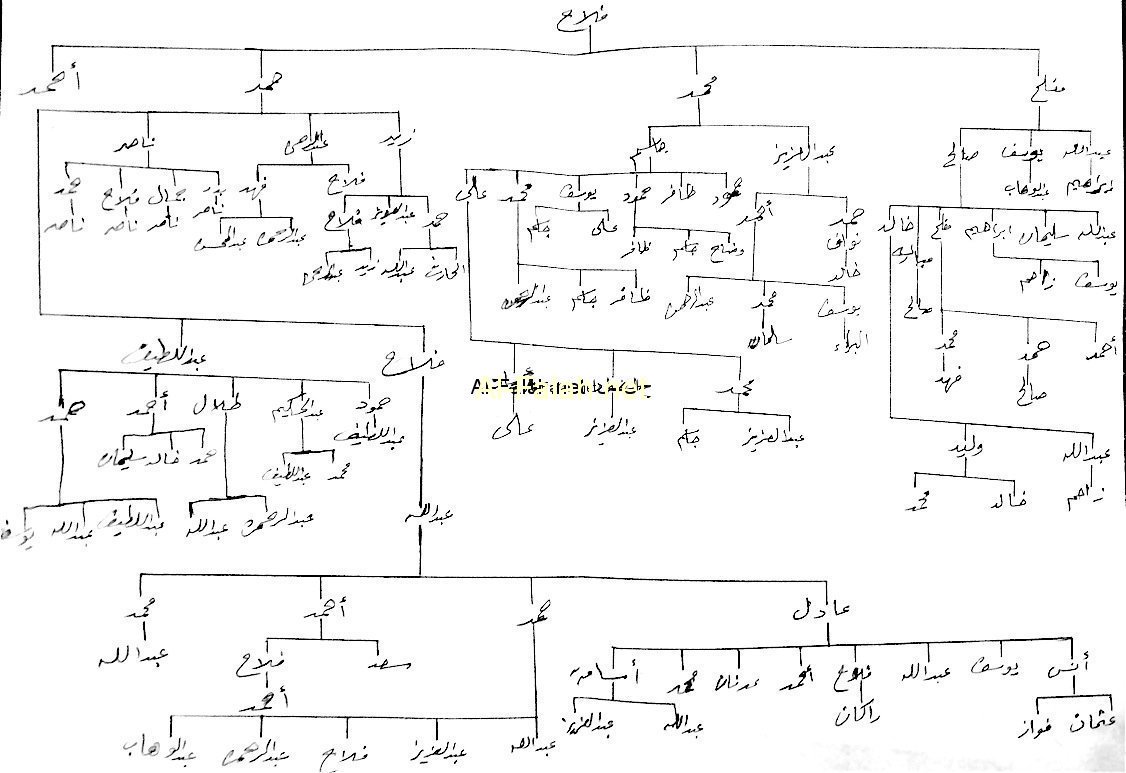 فلاح
مفلح محمد حمد أحمد
عبدالله يوسف صالح عبدالعزيز جاسم زيد عبدالرحمن ناصر
ابراهيم عبدالوهاب
حمود ظافر حمود يوسف محمد علي فلاح فهد بدر جمال فلاح حمد
ناصر ناصر ناصر ناصر
عبدالله سليمان ابراهيم فلح خالد حمد أحمد حمد عبدالعزيز فلاح عبدالرحمن عبدالمحسن
مبارك نواف وضاح جاسم ظافر علي جاسم
يوسف زاحم خالد الحارث عبدالله زيد عبدالرحمن
صالح يوسف محمد عبدالرحمن ظافر جاسم عبدالرحمن
البراء سلمان
أحمد حمد محمد
صالح فهد
فلاح عبداللطيف
محمد
حمود عبدالحكيم طلال أحمد حمد
عبداللطيف
عبدالعزيز جاسم عبدالعزيز علي
محمد عبداللطيف حمد خالد سليمان
عبدالله وليد
زاحم خالد محمد
عبدالله عبدالرحمن عبدالله عبداللطيف عبدالله
عادل حمد أحمد محمد
سعد فلاح عبدالله
أحمد
أنس يوسف عبدالله فلاح أحمد عدنان محمد أسامة
عثمان فواز راكان عبدالله عبدالعزيز
عبدالله عبدالعزيز فلاح عبدالرحمن عبدالوهاب